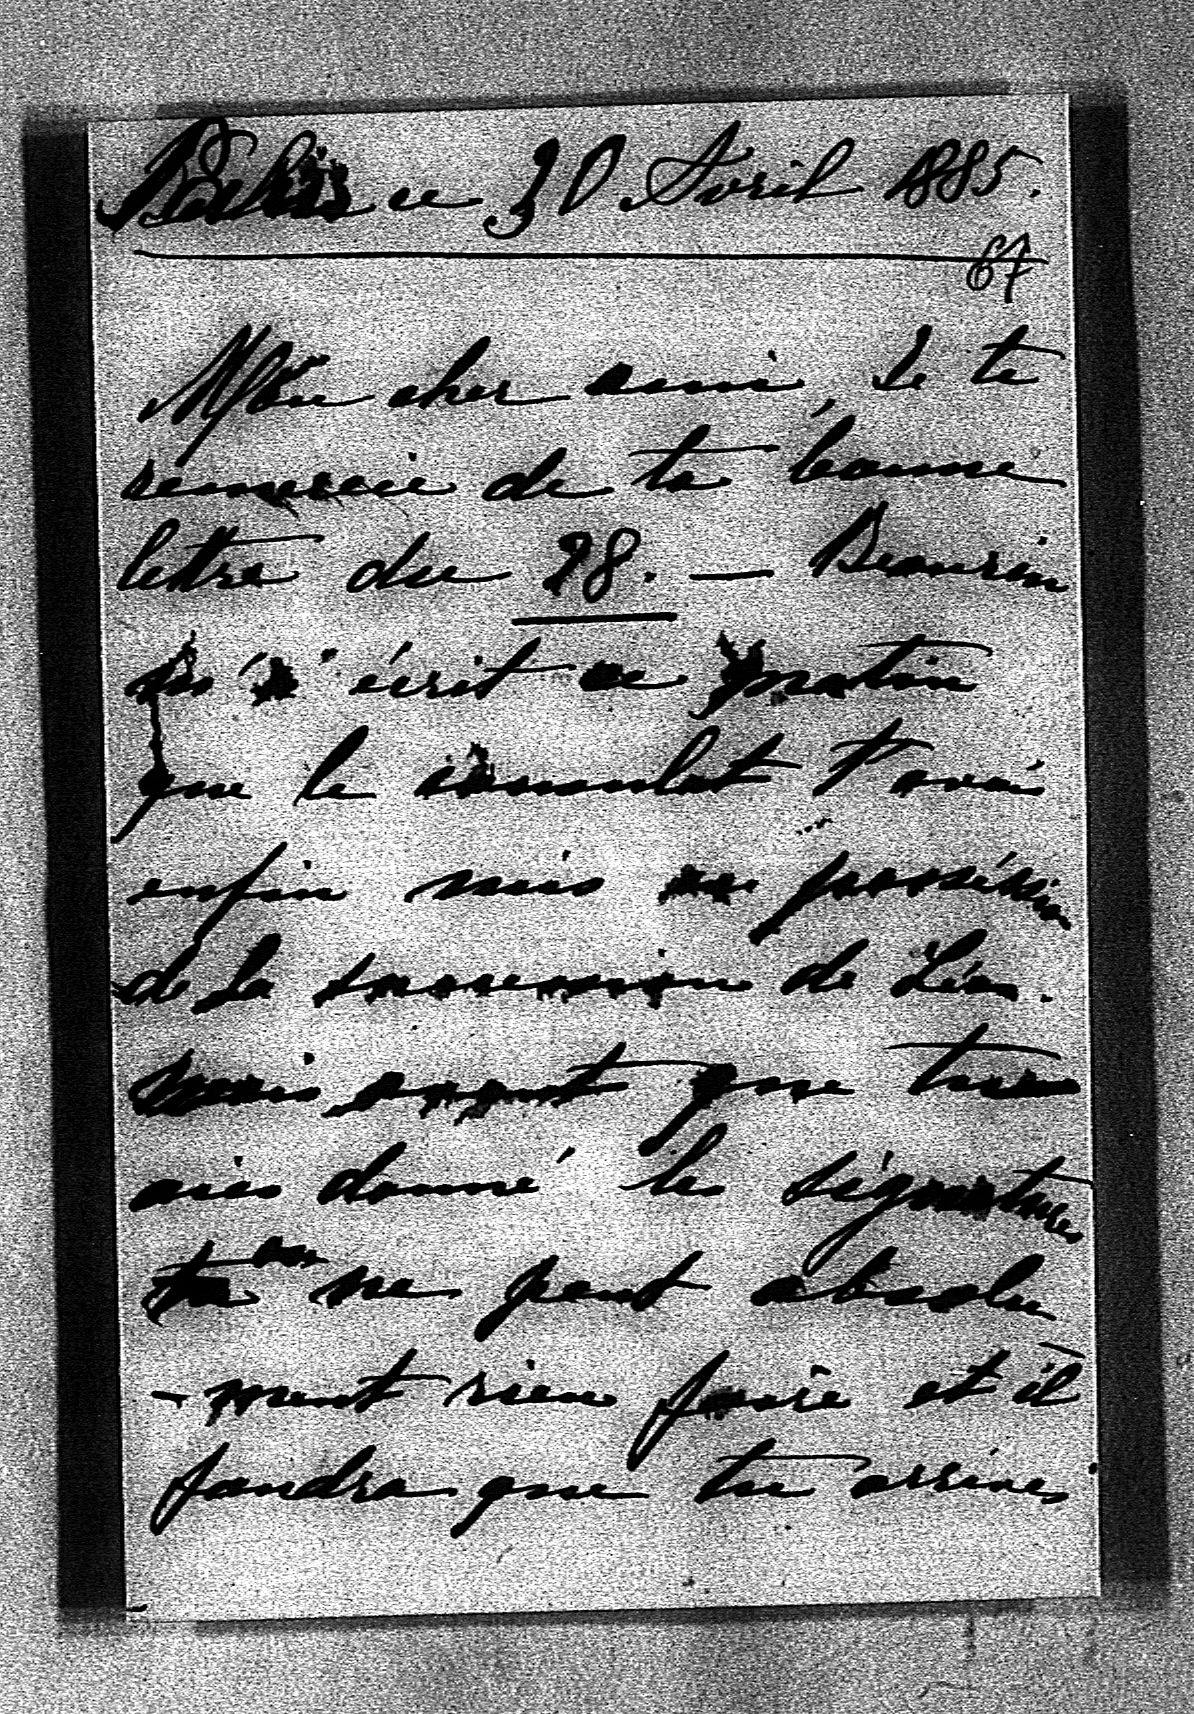 ce 30 Avril 1885.
67
Mon cher ami, Je te
remercie de ta bonne
lettre du 28. — Beaurin
écrit ce matin
que le consulat t'avai
enfin mis en possession
de la succession de Léon.
mais avant que tu
aies donné les signatures
on ne peut absolu
-ment rien faire et il
faudra que tu arrives